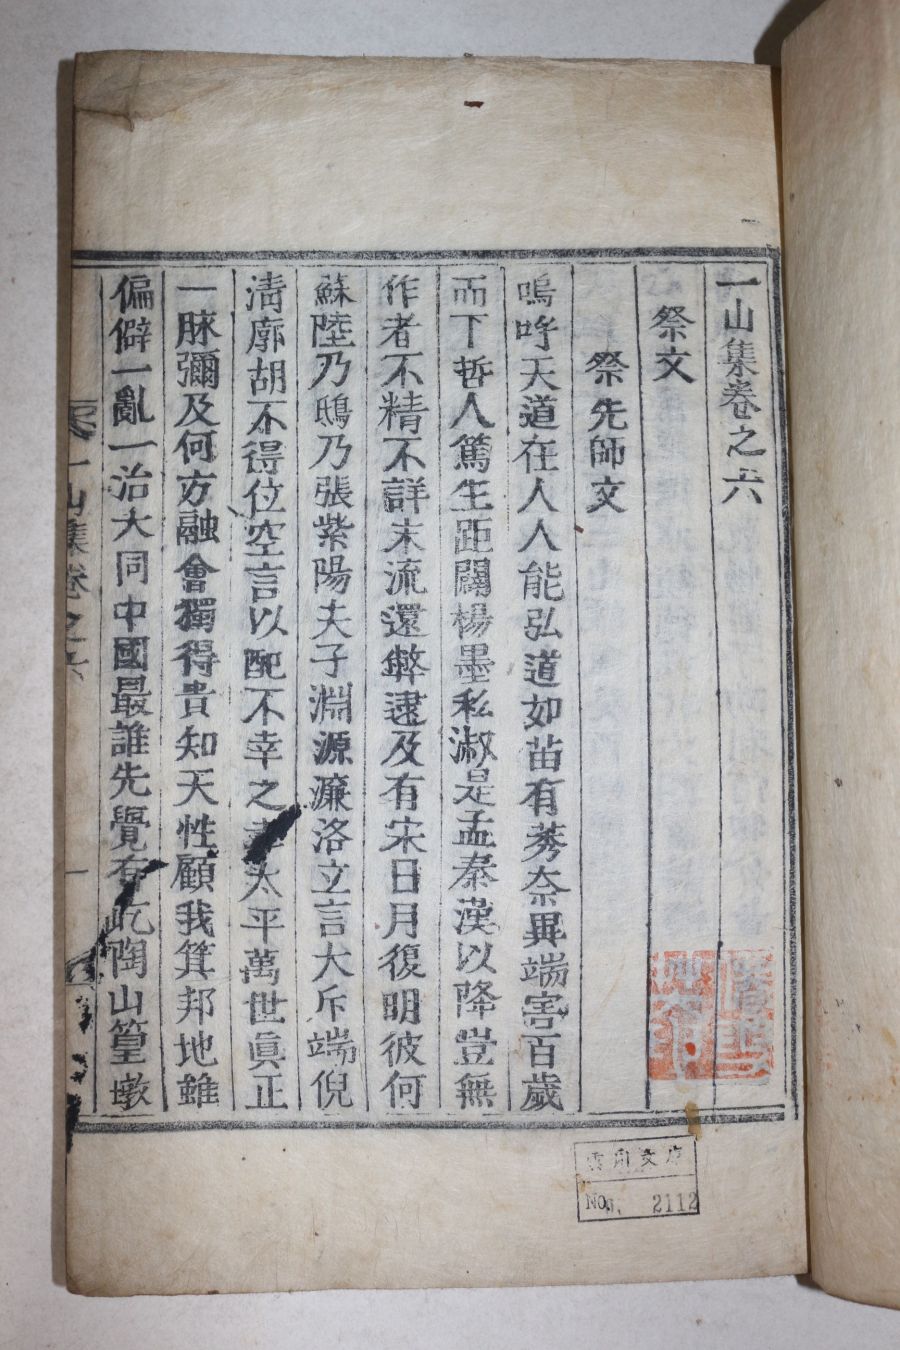 一山集卷之六
祭文
祭先師文
嗚呼天道在人人能弘道如苗有莠奈異端害百歲
而下哲人篤生距闢楊墨私淑是孟秦漢以降豈無
作者不精不詳末流還弊逮及有宋日月復明彼何
蘇陸乃鴟乃張紫陽夫子淵源濂洛立言大斥端倪
淸廓胡不得位空言以配不幸之幸太平萬世眞正
一脉彌及何方融會獨得貴知天性顧我箕邦地雖
偏僻一亂一治大同中國最誰先覺有屹陶山篁墩
一山集卷之六
一
No. 2112